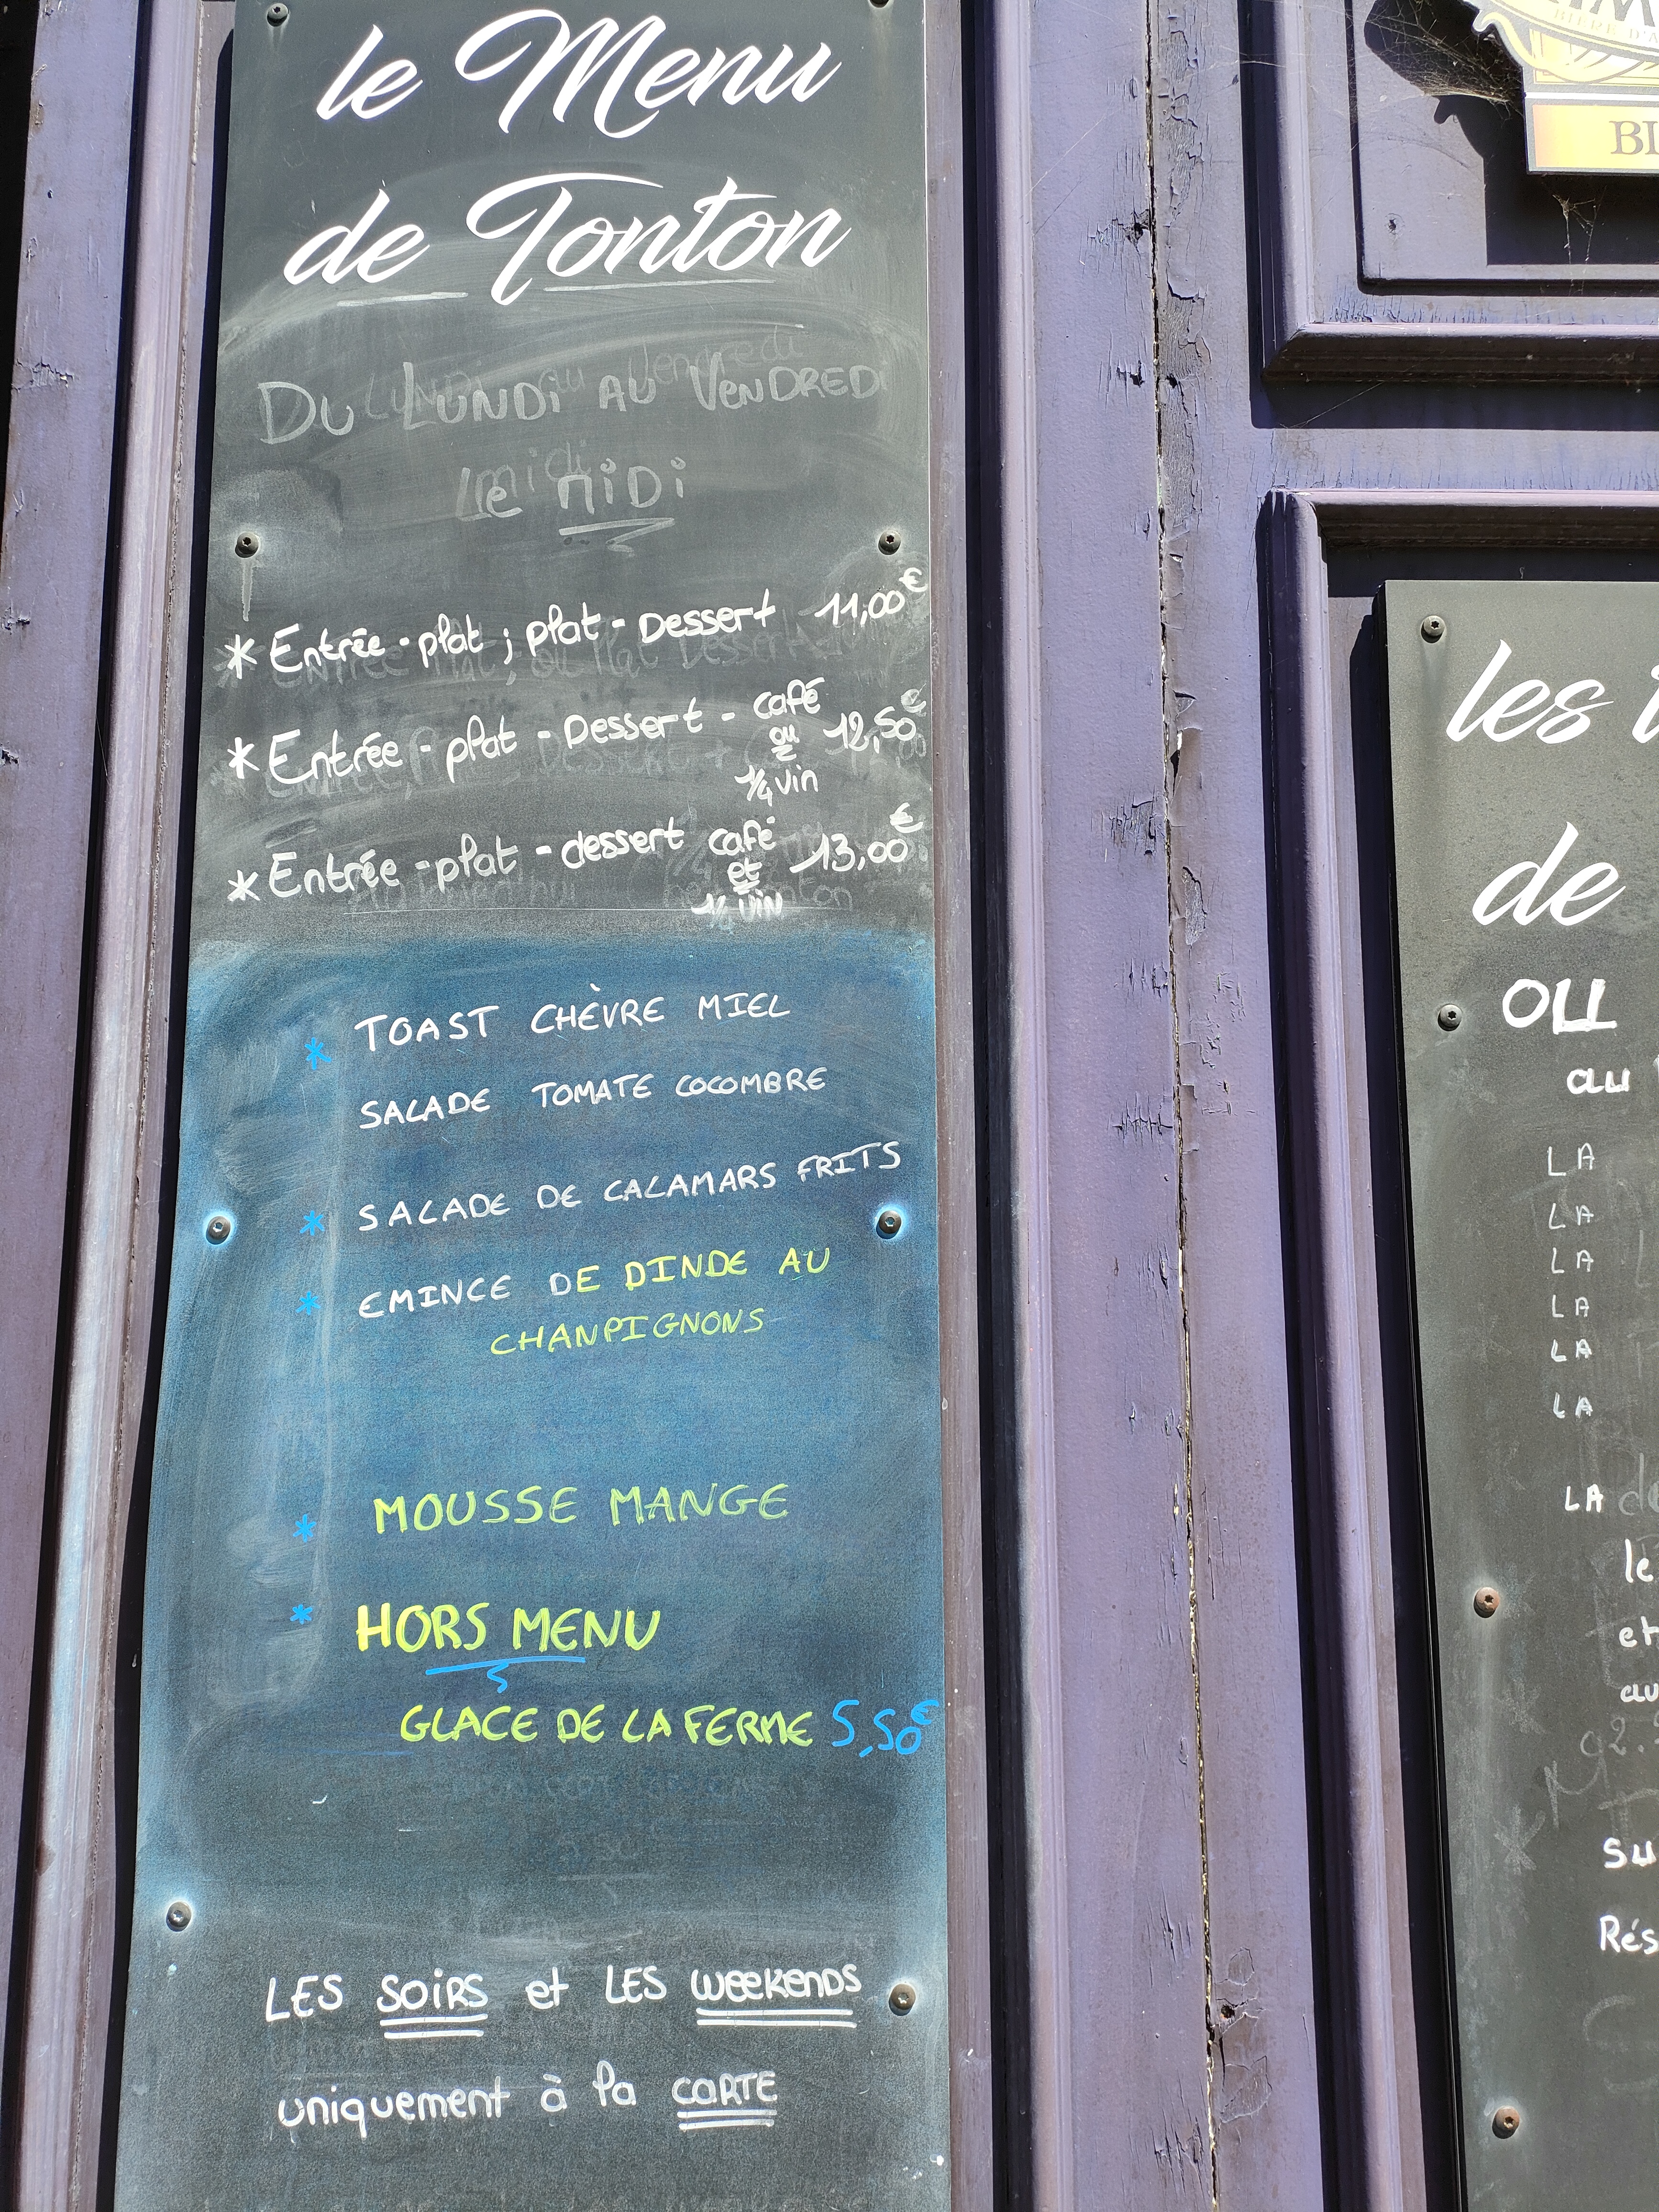 le Menu
de Tonton
DU LUNDi AU VENDREDi
le MiDi
* Entrée - plat ; plat - Dessert 11,00€
* Entrée - plat - Dessert - café ou 1/4 vin 12,50€
* Entrée - plat - dessert café et 1/4 vin 13,00€
* TOAST CHÈVRE MIEL
SALADE TOMATE COCOMBRE
* SALADE DE CALAMARS FRITS
* EMINCE DE DINDE AU
CHANPIGNONS
* MOUSSE MANGE
* HORS MENU
GLACE DE LA FERME 5,50€
LES SOIRS et LES WEEKENDS
uniquement à la CARTE
BIÈRE D'A
BI
les
de
OU
au
LA
LA
LA
LA
LA
LA
LA
le
et
au
su
Rés